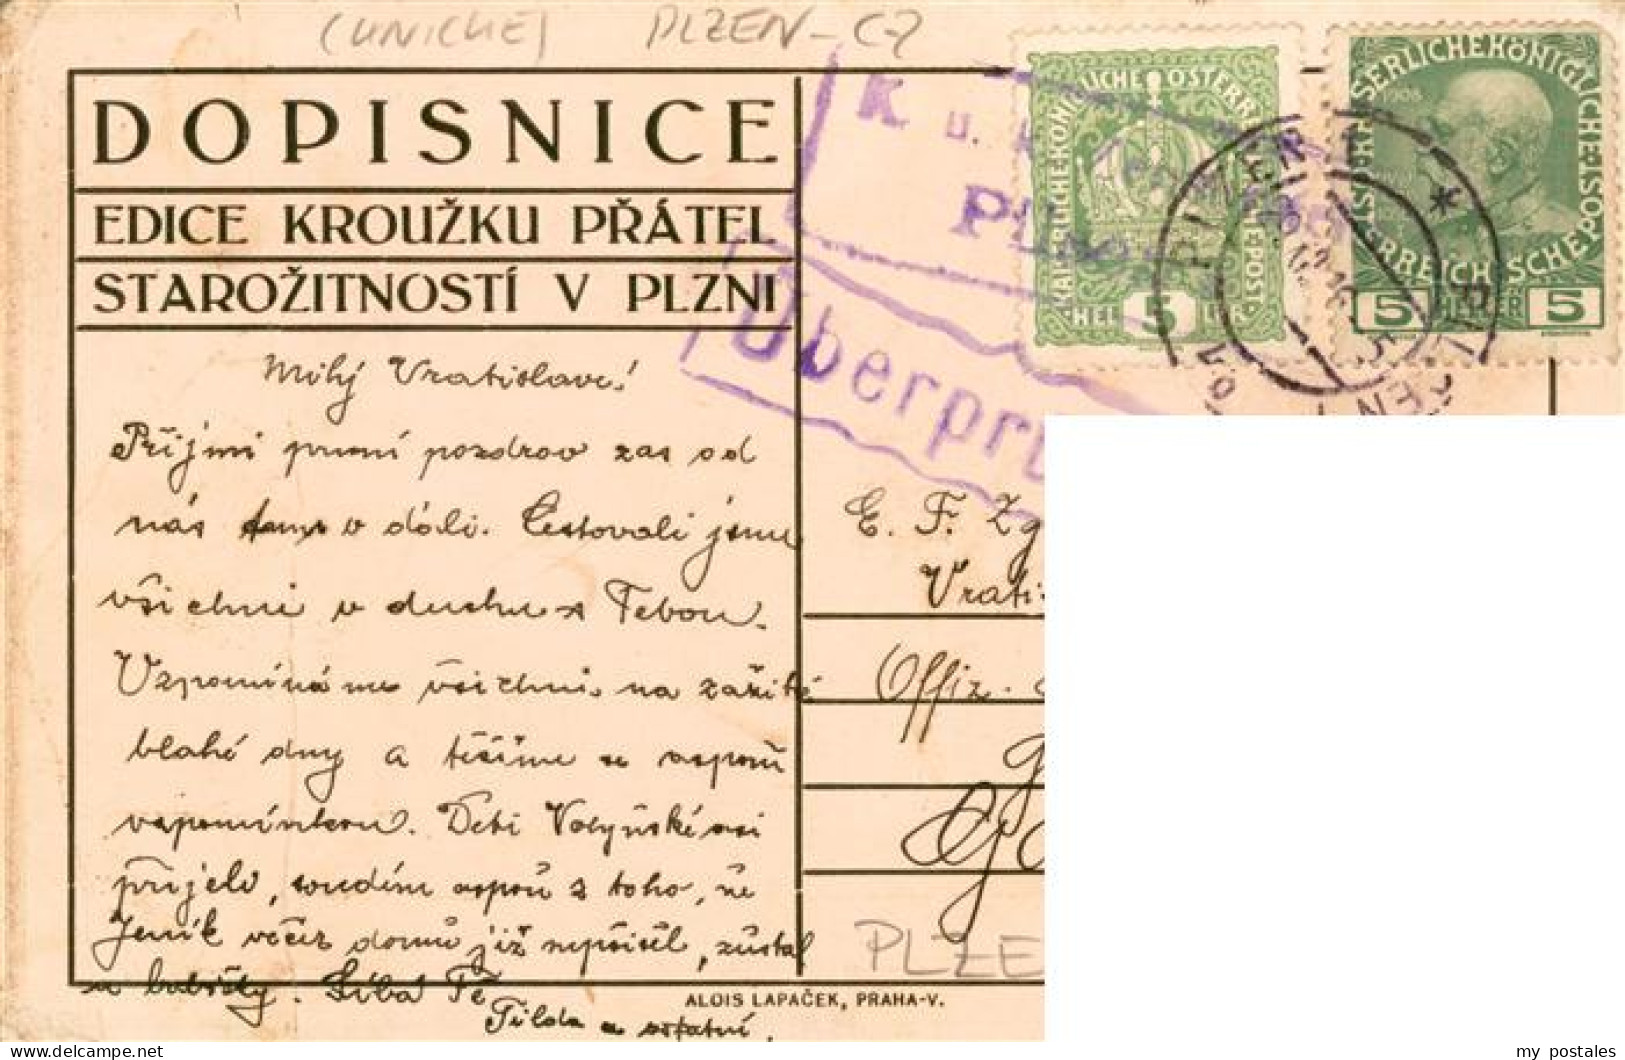 (UNICHE) PLZEN-CZ
DOPISNICE
EDICE KROUŽKU PŘÁTEL
STAROŽITNOSTÍ V PLZNI
Milý Vratislave!
Přijmi první pozdrav zas od
nás v dáli. Cestovali jsme
všichni v duchu s Tebou.
Vzpomínáme všichni na zažité
blahé dny a těšíme se aspoň
vzpomínkou. Děti
přijely, soudím aspoň z toho, že
Jeník včera domů již nepřišel, zůstal
u babičky. Líbá Tě
Tilda a ostatní.
ALOIS LAPÁČEK, PRAHA-V.
K. u. k.
Überprü
KAISERLICHE·KÖNIGLICHE·ÖSTERREICHISCHE·POST
5
HELLER
KAISERLICHE KÖNIGLICHE ÖSTERREICHISCHE POST
1908
5 HELLER 5
PLZEŇ
PILSEN
E. F. Zg
Vrati-
Offiz.
PLZE
my postales